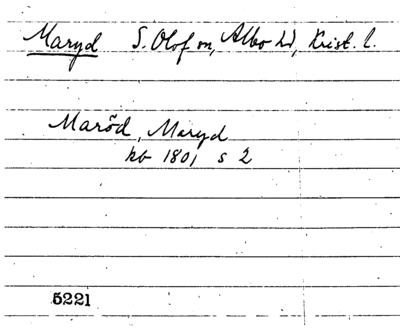 Maryd S. Olof sn, Albo hd, Krist. l.
Maröd, Maryd
kb 1801 s 2
5221